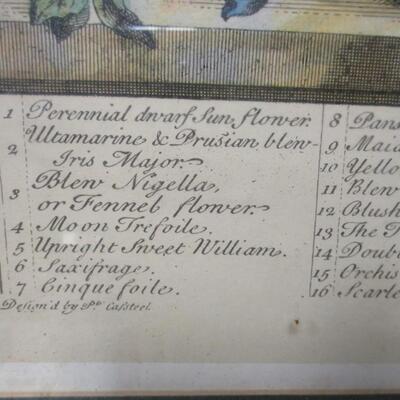 1 Perennial dwarf Sun flower.
2 Ultamarine & Prusian blew
Iris Major.
3 Blew Nigella,
or Fennel flower.
4 Moon Trefoile.
5 Upright Sweet William.
6 Saxifrage.
7 Cinque foile.
Design'd by Pr. Casteel.
8 Pans
9 Maid
10 Yello
11 Blew
12 Blush
13 The T
14 Doubl
15 Orchis
16 Scarle